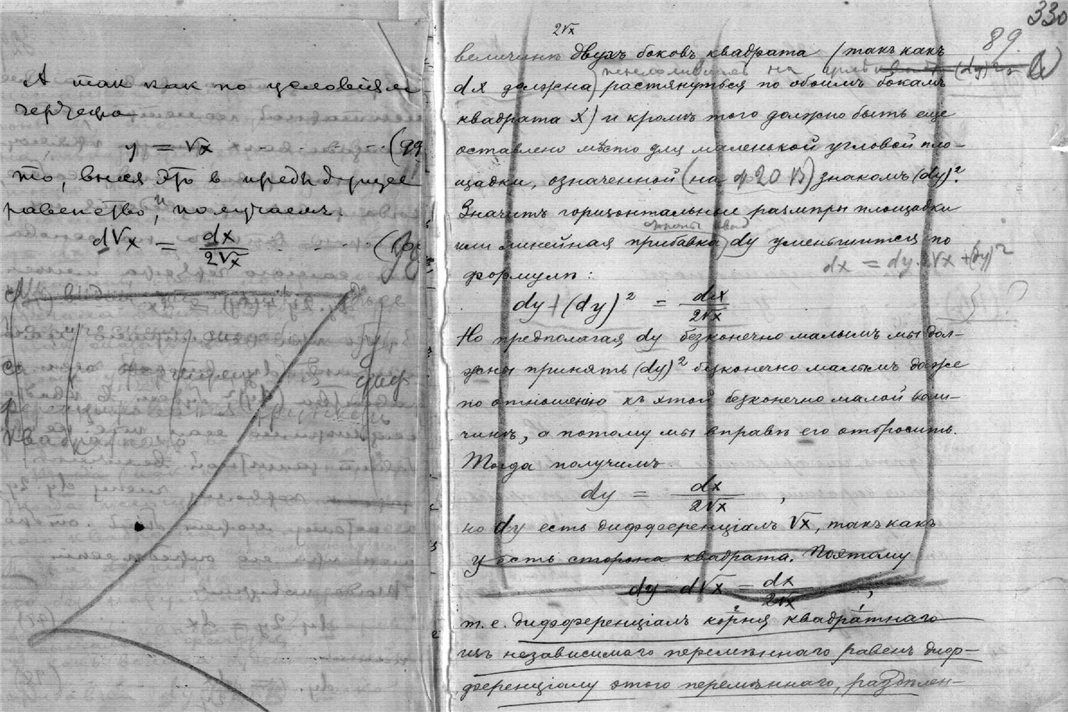 А так как по условіям
чертежа
y = √x (99
то, внеся это в предыдущее
равенство, получаем:
d√x = dx/2√x
330
89.
2√x
величинѣ двухъ боковъ квадрата (такъ какъ
dx должна растянуться по обоимъ бокамъ
квадрата x) и кромѣ того должно быть еще
оставлено мѣсто для маленькой угловой пло-
щадки, означенной (на ч 20 В) знакомъ (dy)².
Значитъ горизонтальные размѣры площадки
или линейная прибавка dy уменьшится по
dx = dy·2√x + (dy)²
формулѣ:
dy + (dy)² = dx/2√x
Но предполагая dy безконечно малымъ мы дол-
жны принять (dy)² безконечно малымъ даже
по отношенію къ этой безконечно малой вели-
чинѣ, а потому мы вправѣ его отбросить.
Тогда получимъ
dy = dx/2√x ,
но dy есть дифференціалъ √x, такъ какъ
y есть сторона квадрата. Поэтому
dy = d√x = dx/2√x ,
т. е. дифференціалъ корня квадратнаго
изъ независимаго перемѣннаго равенъ диф-
ференціалу этого перемѣннаго, раздѣлен-